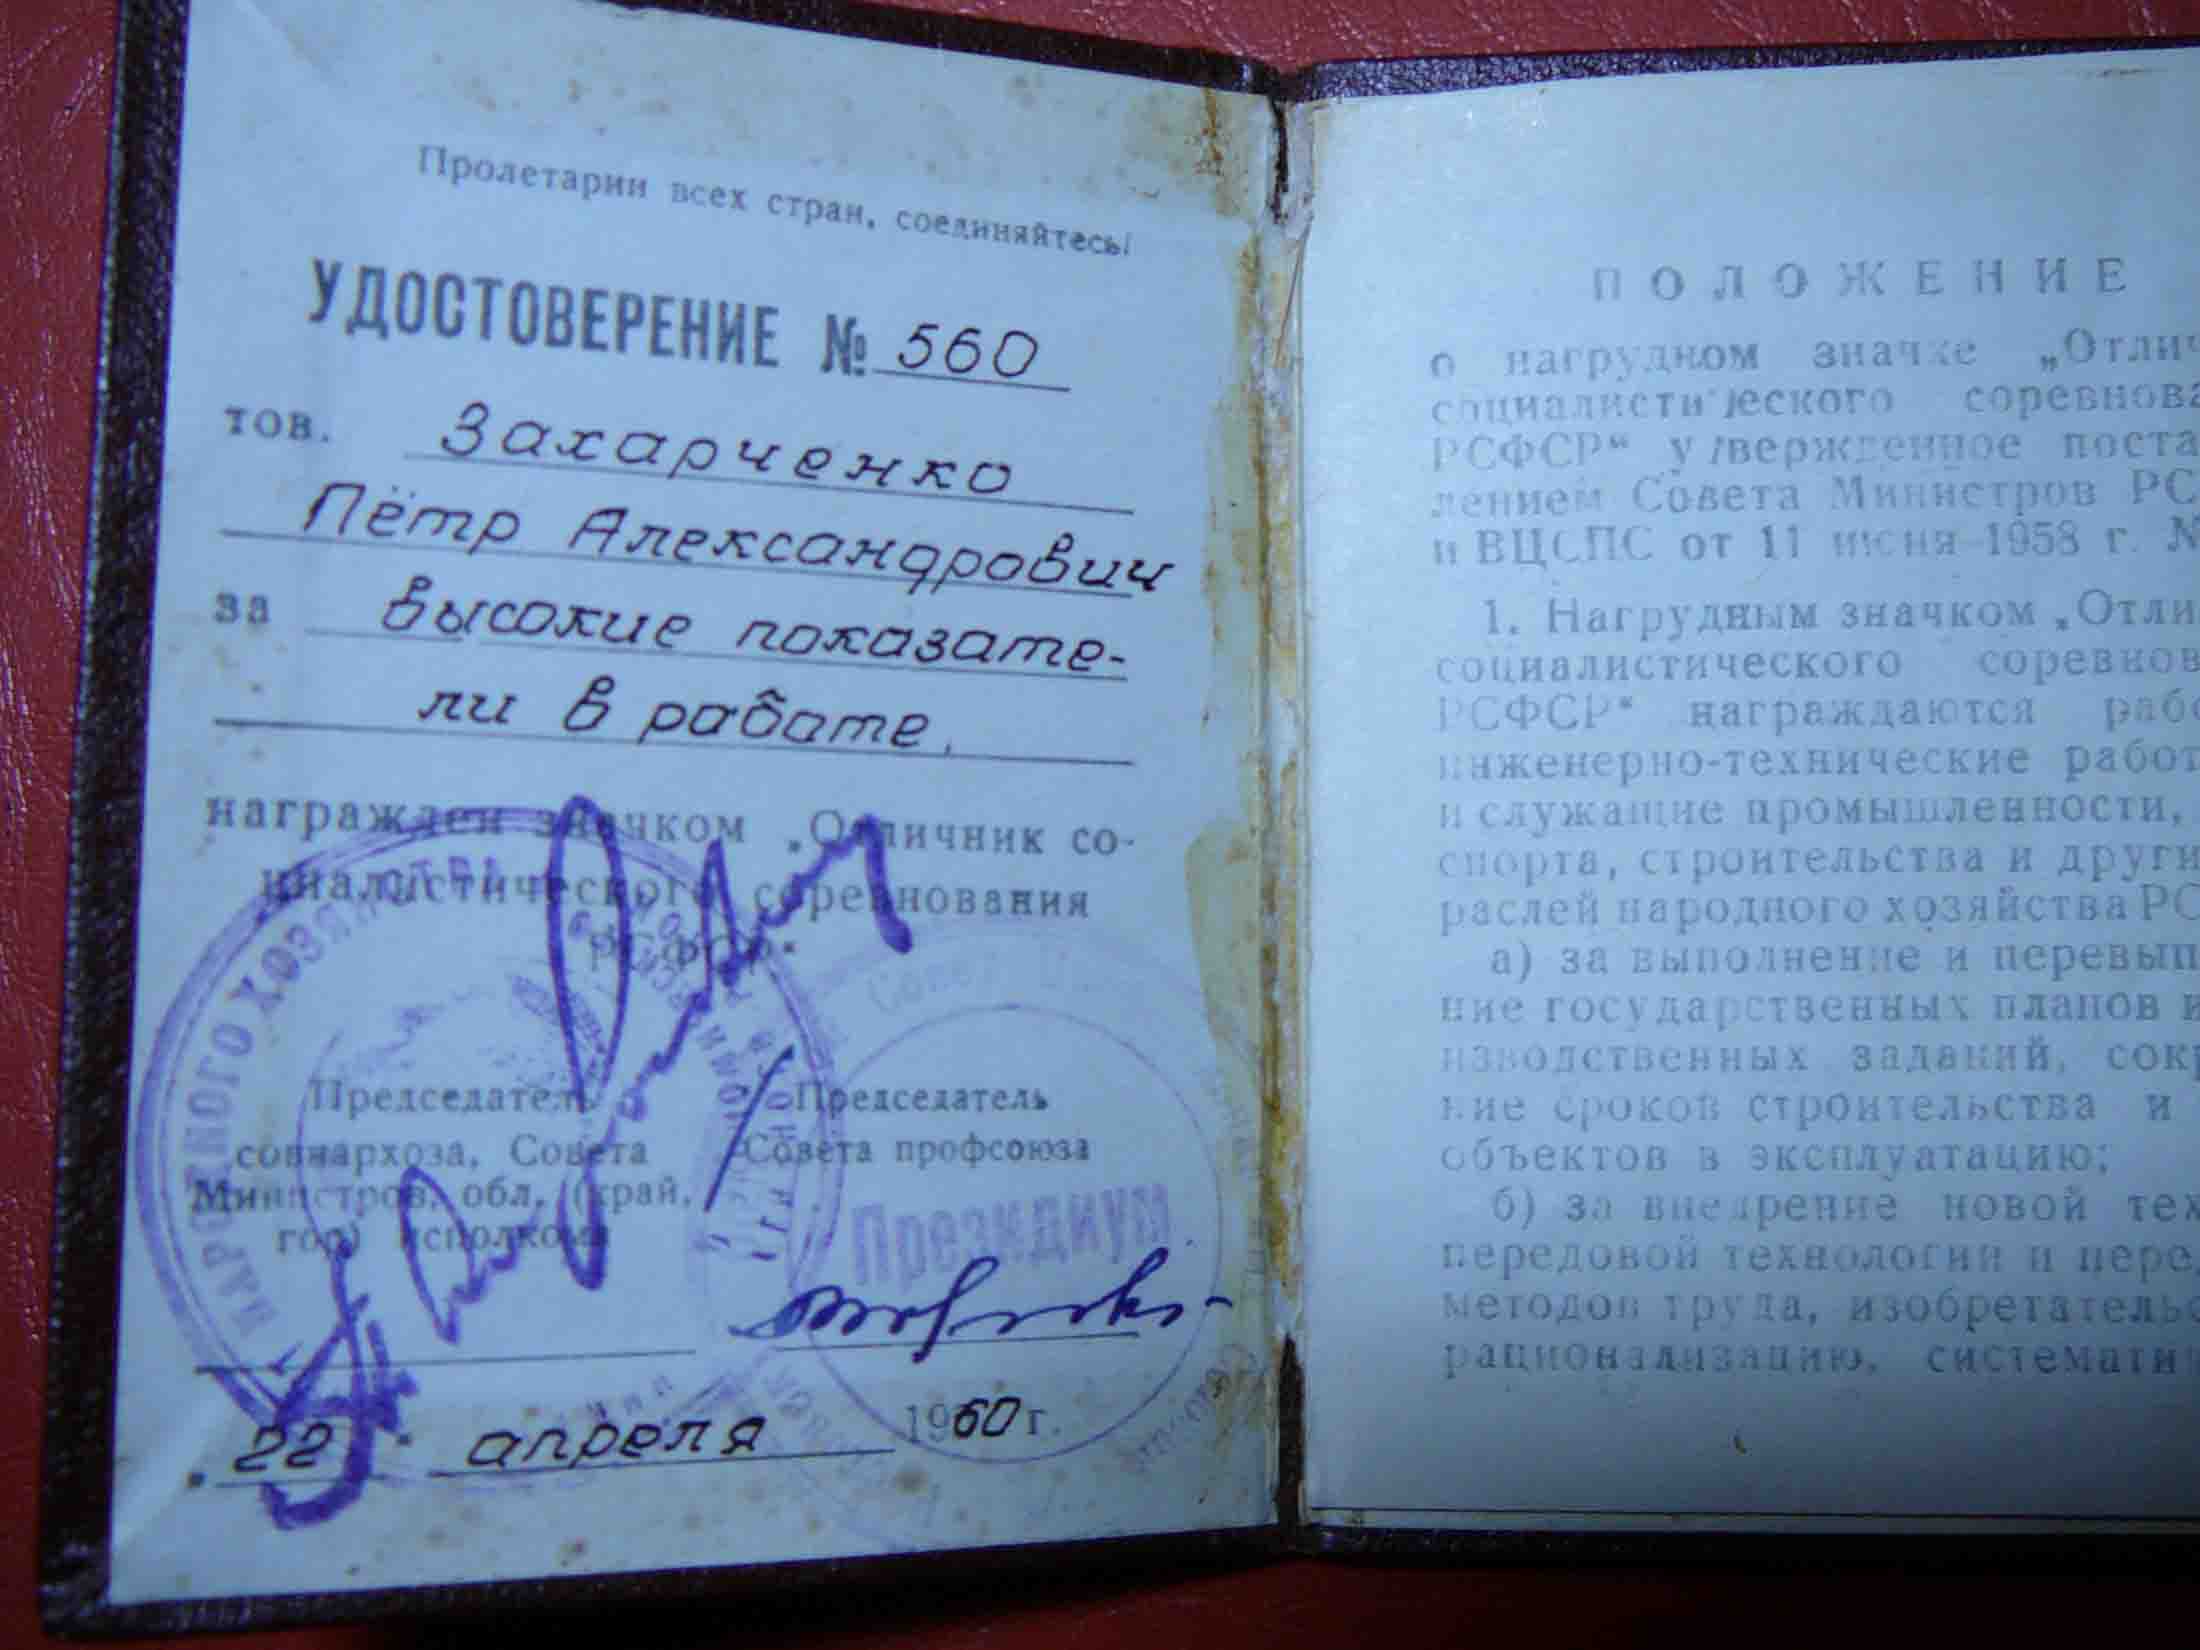 Пролетарии всех стран, соединяйтесь!
УДОСТОВЕРЕНИЕ № 560
тов. Захарченко
Пётр Александрович
за высокие показате-
ли в работе,
награжден значком „Отличник со-
циалистического соревнования
РСФСР“
Председатель
совнархоза, Совета
Министров, обл. (край,
гор) исполкома
Председатель
Совета профсоюза
НАРОДНОГО ХОЗЯЙСТВА
Президиум
„22“ апреля 1960 г.
ПОЛОЖЕНИЕ
о нагрудном значке „Отлич
социалистического соревнова
РСФСР“ утвержденное поста
лением Совета Министров РС
и ВЦСПС от 11 июня 1958 г. №
1. Нагрудным значком „Отли
социалистического соревнов
РСФСР“ награждаются рабо
инженерно-технические работ
и служащие промышленности,
спорта, строительства и други
раслей народного хозяйства РС
а) за выполнение и перевып
ние государственных планов и
изводственных заданий, сокр
ние сроков строительства и
объектов в эксплуатацию;
б) за внедрение новой тех
передовой технологии и пере
методов труда, изобретательс
рационализацию, системати